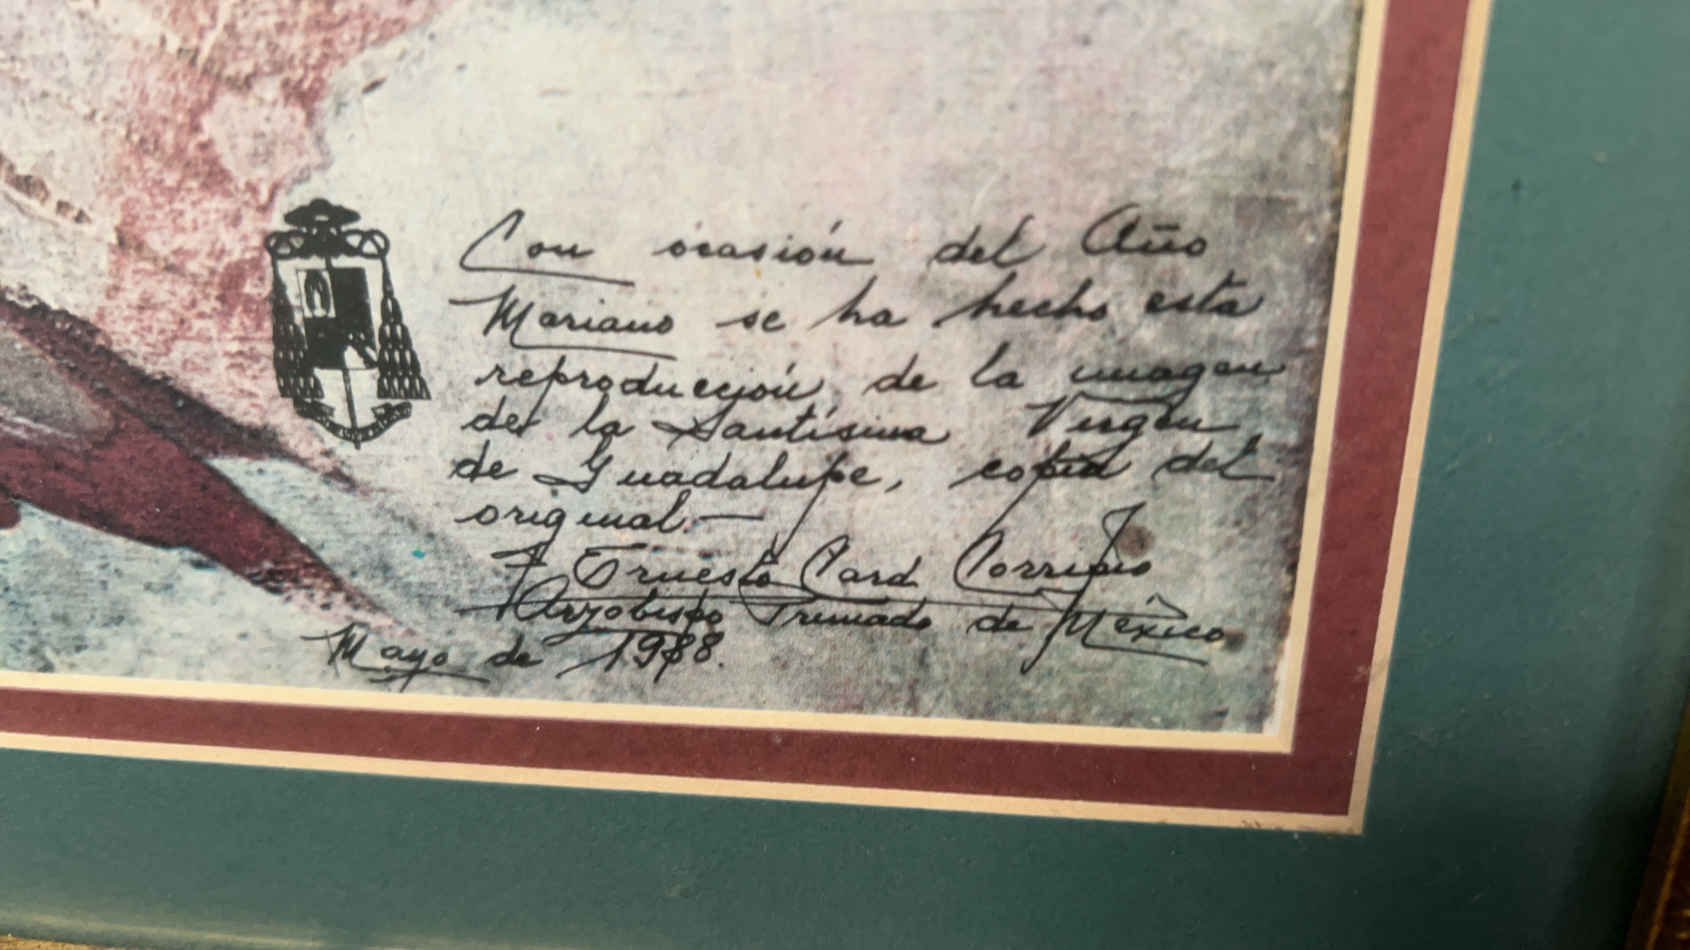 Con ocasión del Año
Mariano se ha hecho esta
reproducción de la imagen
de la Santísima Virgen
de Guadalupe, copia del
original.—
+ Ernesto Card Corripio
Arzobispo Primado de México
Mayo de 1988.